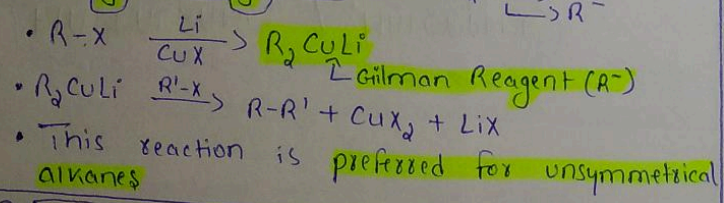 ↳ R⁻
• R-X Li/CuX → R₂CuLi
↳ Gilman Reagent (R⁻)
• R₂CuLi R'-X → R-R' + CuX₂ + LiX
• This reaction is preferred for unsymmetrical
alkanes